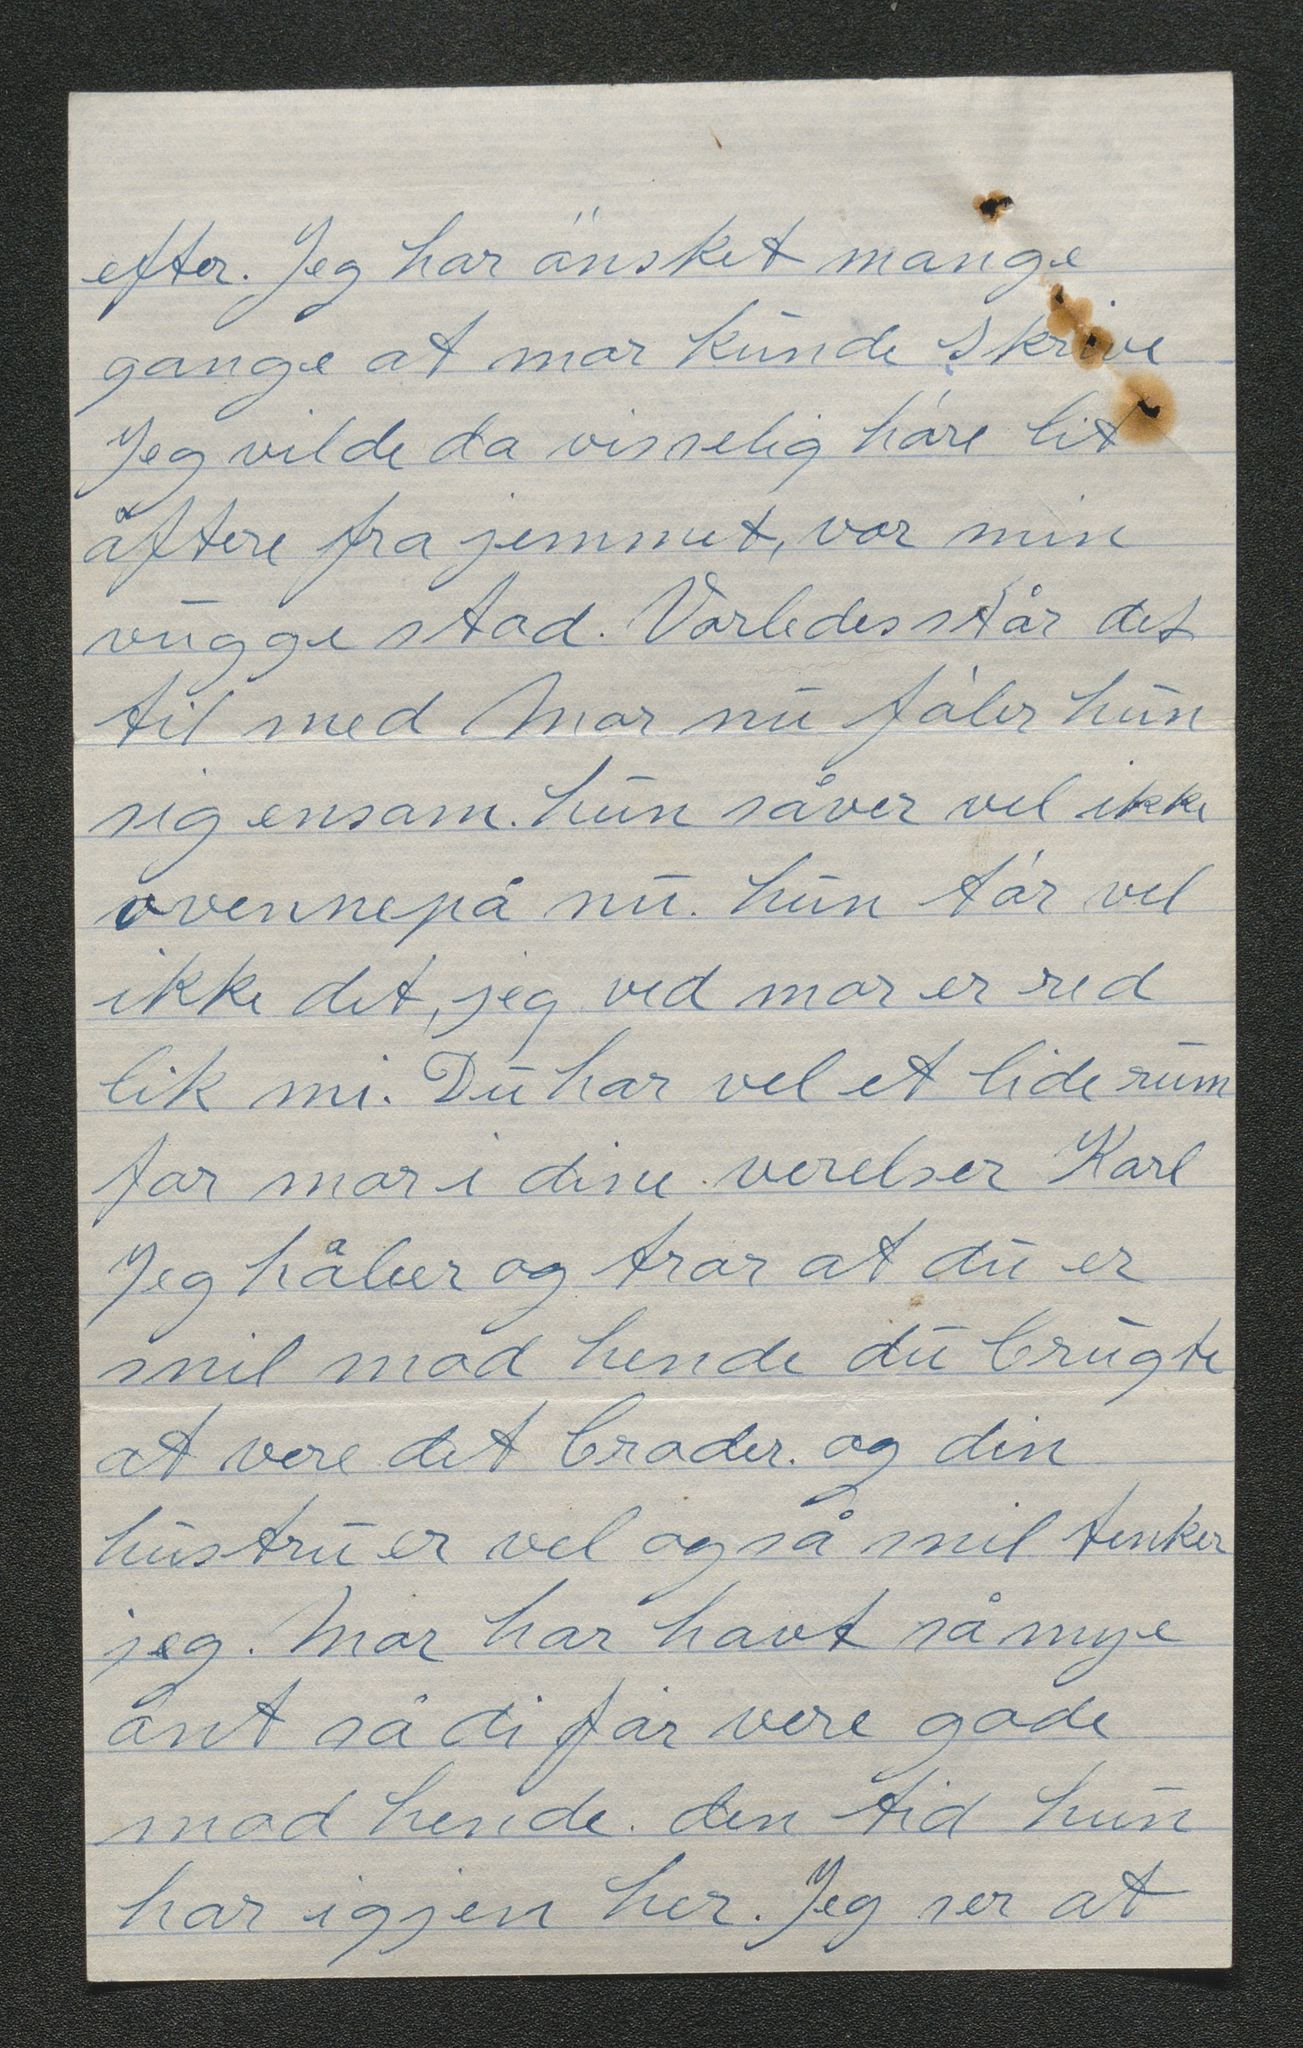 efter. Jeg har önsket mange
gange at mor kunde skrive
Jeg vilde da visselig hóre lit
åftere fra jemmet, vor min
vugge stod. Vorledes står det
til med Mor nu fóler hun
sig ensam. hun såver vel ikke
ovennepå nu. hun tór vel
ikke det, jeg ved mor er red
lik mi. Du har vel et lide rum
for mor i dine verelser Karl
Jeg håber og tror at du er
snil mod hende du brugte
at vere det broder. og din
hustru er vel også snil tenker
jeg. Mor har havt så mye
ónt så di får vere gode
mod hende. den tid hun
har igjen her. Jeg ser at